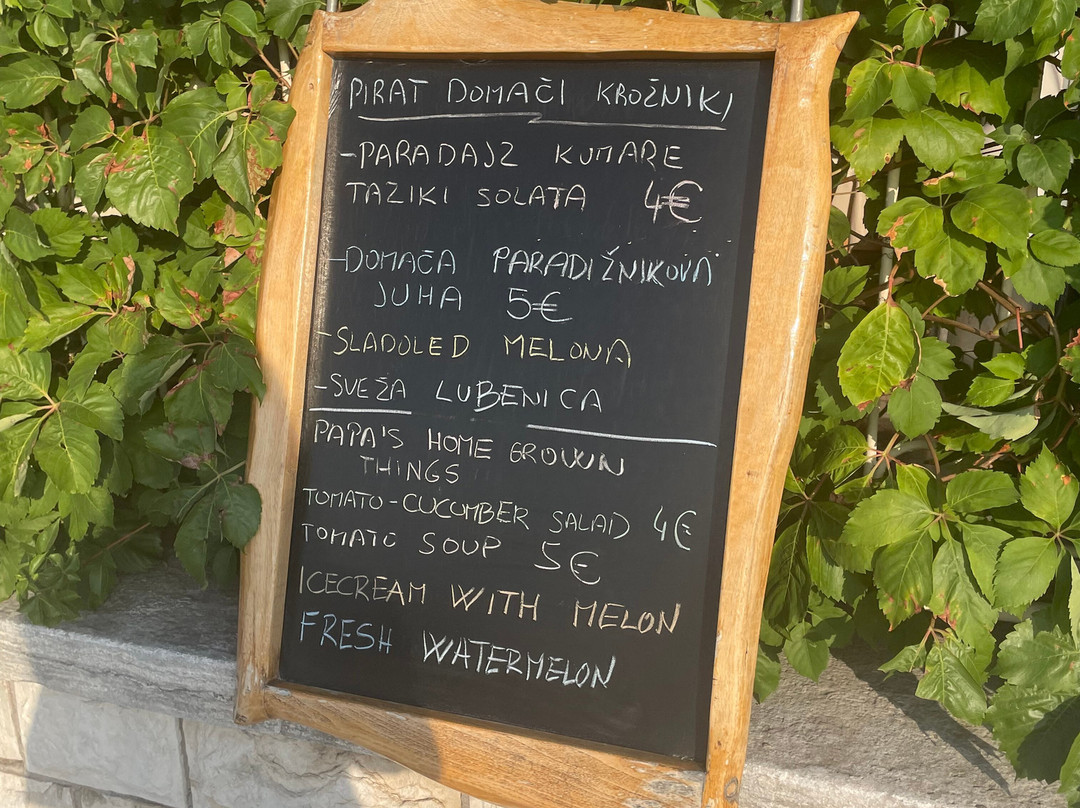 PIRAT DOMAČI KROŽNIKI
-PARADAJZ KUMARE
TAZIKI SOLATA 4€
-DOMAČA PARADIŽNIKOVA
JUHA 5€
-SLADOLED MELONA
-SVEŽA LUBENICA
PAPA'S HOME GROWN
THINGS
TOMATO-CUCUMBER SALAD 4€
TOMATO SOUP 5€
ICECREAM WITH MELON
FRESH WATERMELON